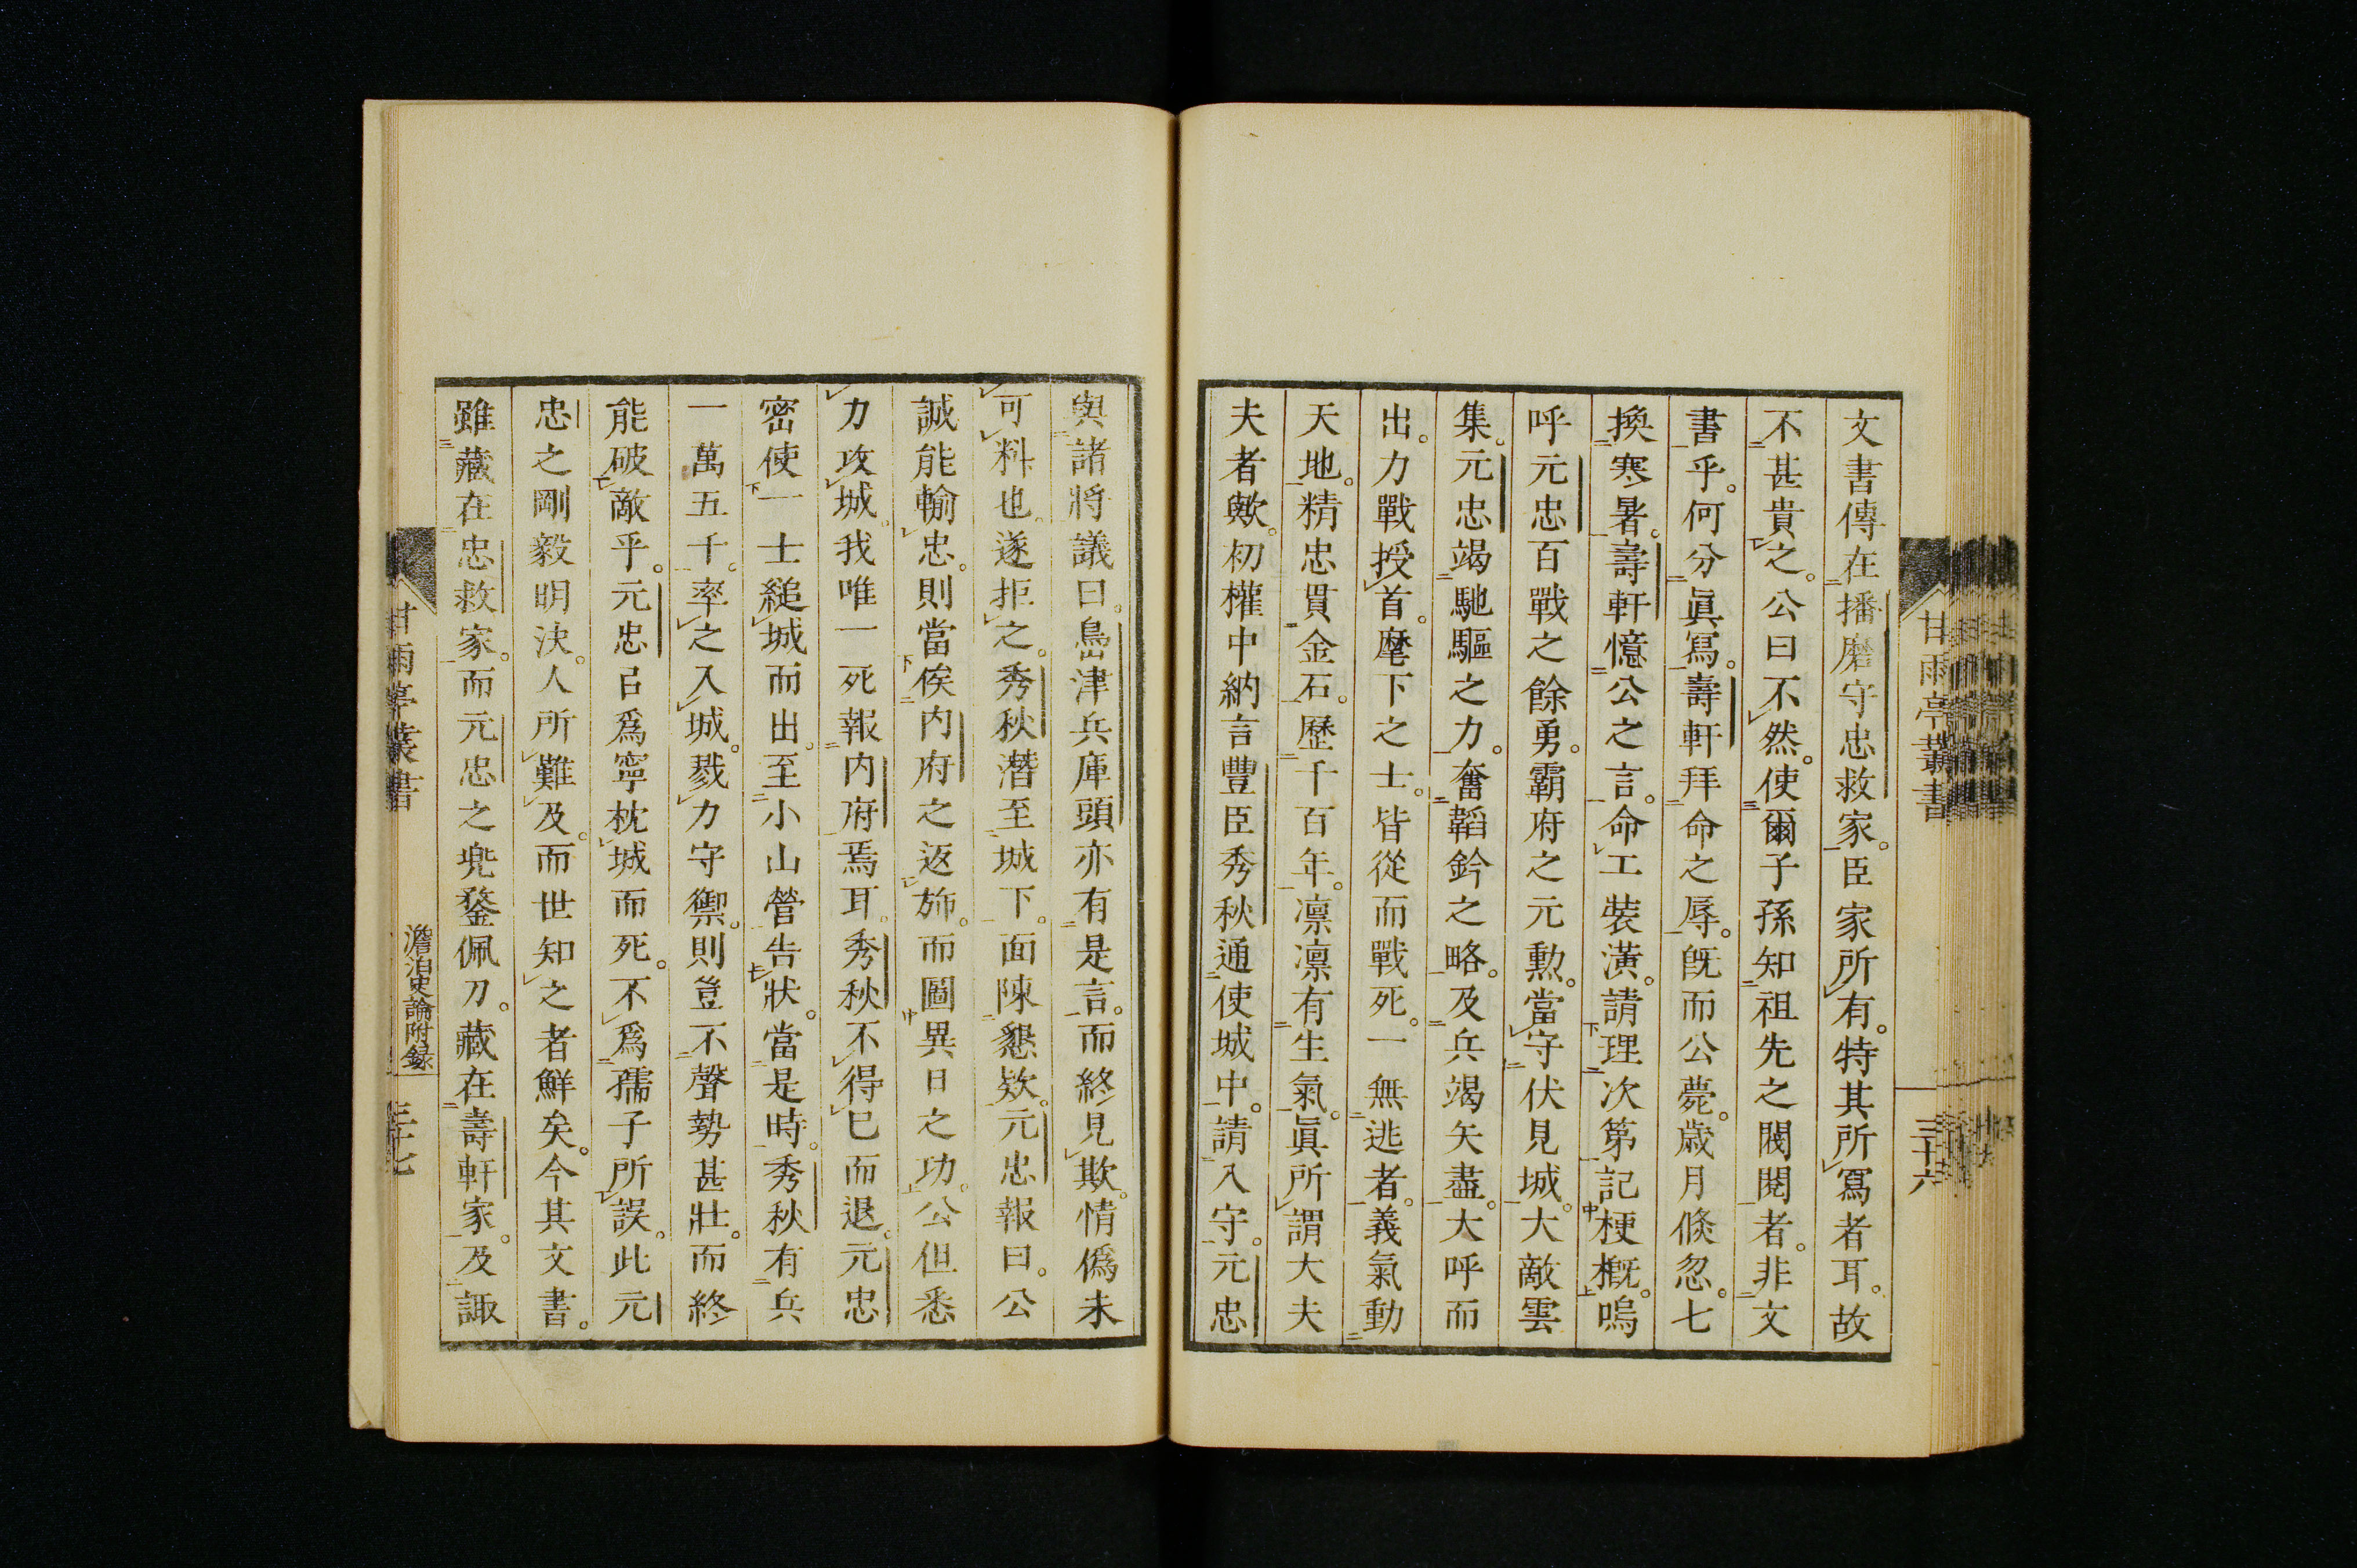 文書傳在播磨守忠救家。臣家所有。特其所寫者耳。故
不甚貴之。公曰不然。使爾子孫知祖先之閥閱者。非文
書乎。何分眞寫。壽軒拜命之辱。旣而公薨。歳月倐忽。七
換寒暑。壽軒憶公之言。命工裝潢。請理次第記梗概。嗚
呼元忠百戰之餘勇。霸府之元勲。當守伏見城。大敵雲
集。元忠竭馳驅之力。奮韜鈐之略。及兵竭矢盡。大呼而
出。力戰授首。麾下之士。皆從而戰死。一無逃者。義氣動
天地。精忠貫金石。歷千百年。凛凛有生氣。眞所謂大夫
夫者歟。初權中納言豐臣秀秋通使城中。請入守。元忠
甘雨亭叢書
三十六
與諸將議曰。島津兵庫頭亦有是言。而終見欺。情僞未
可料也。遂拒之。秀秋潛至城下。面陳懇欵。元忠報曰。公
誠能輸忠。則當俟内府之返斾。而圖異日之功。公但悉
力攻城。我唯一死報内府焉耳。秀秋不得已而退。元忠
密使一士縋城而出。至小山營告狀。當是時。秀秋有兵
一萬五千。率之入城。戮力守禦。則豈不聲勢甚壯。而終
能破敵乎。元忠㠯爲寧枕城而死。不爲孺子所誤。此元
忠之剛毅明決。人所難及。而世知之者鮮矣。今其文書。
雖藏在忠救家。而元忠之兜鍪佩刀。藏在壽軒家。及諏
甘雨亭叢書
澹泊史論附録
三十七